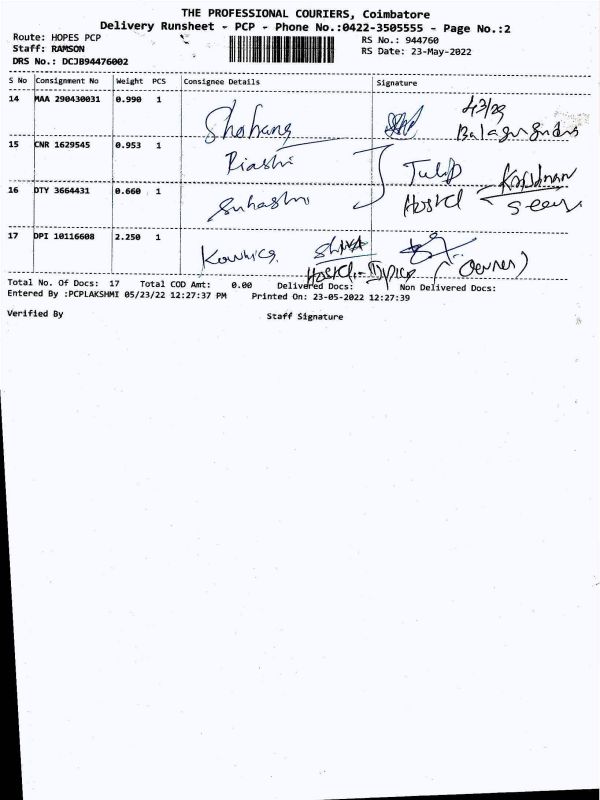 THE PROFESSIONAL COURIERS, Coimbatore
Delivery Runsheet - PCP - Phone No.:0422-3505555 - Page No.:2
Route: HOPES PCP
RS No.: 944760
Staff: RAMSON
RS Date: 23-May-2022
DRS No.: DCJB94476002
S No Consignment No Weight PCS Consignee Details Signature
14 MAA 290430031 0.990 1 Shahang
15 CNR 1629545 0.953 1 Riashi Tulip
16 DTY 3664431 0.660 1 Suhashni Hostel
17 DPI 10116608 2.250 1 Kowhica Shiva
Hostel (Owner)
Total No. Of Docs: 17 Total COD Amt: 0.00 Delivered Docs: Non Delivered Docs:
Entered By :PCPLAKSHMI 05/23/22 12:27:37 PM Printed On: 23-05-2022 12:27:39
Verified By Staff Signature